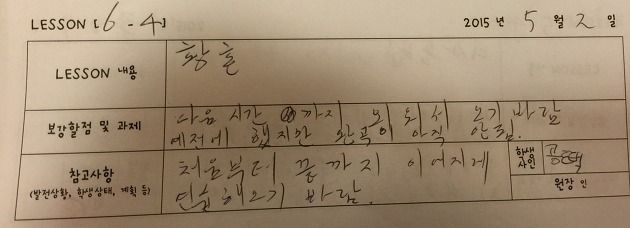 LESSON [6-4] 2015 년 5 월 2 일
LESSON 내용
황혼
보강할점 및 과제
다음 시간 까지 외워서 오기 바람
예전에 했지만 완곡이 아직 안됨.
참고사항
(발전상황, 학생상태, 계획 등)
처음부터 끝까지 이어지게
연습해오기 바람.
학생
사인
원장 인